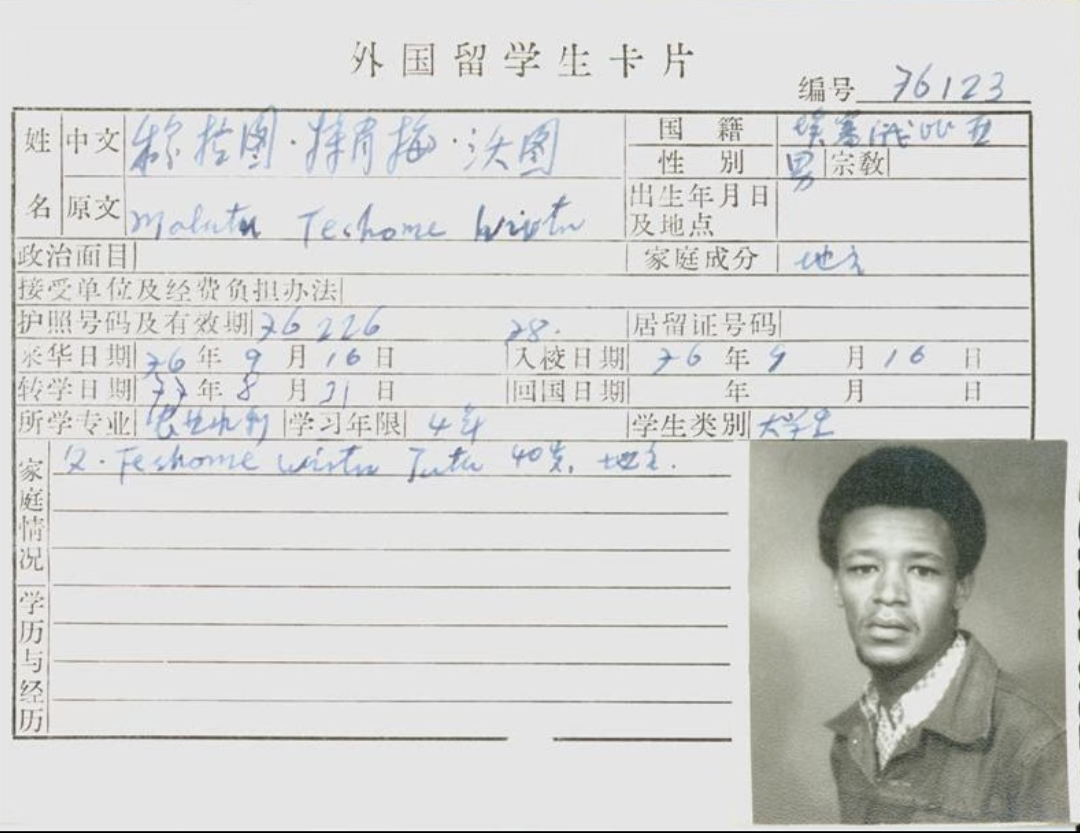 外国留学生卡片
编号 76123
姓名 中文 穆拉图·特肖梅·沃图 国籍 埃塞俄比亚
性别 男 宗教
原文 Malatu Teshome Wirtu 出生年月日及地点
政治面目 家庭成分 地主
接受单位及经费负担办法
护照号码及有效期 76226 78. 居留证号码
来华日期 76年9月16日 入校日期 76年9月16日
转学日期 77年8月31日 回国日期 年 月 日
所学专业 学习年限 4年 学生类别 大学生
家庭情况 父. Teshome Wirtu 40岁. 地主.
学历与经历